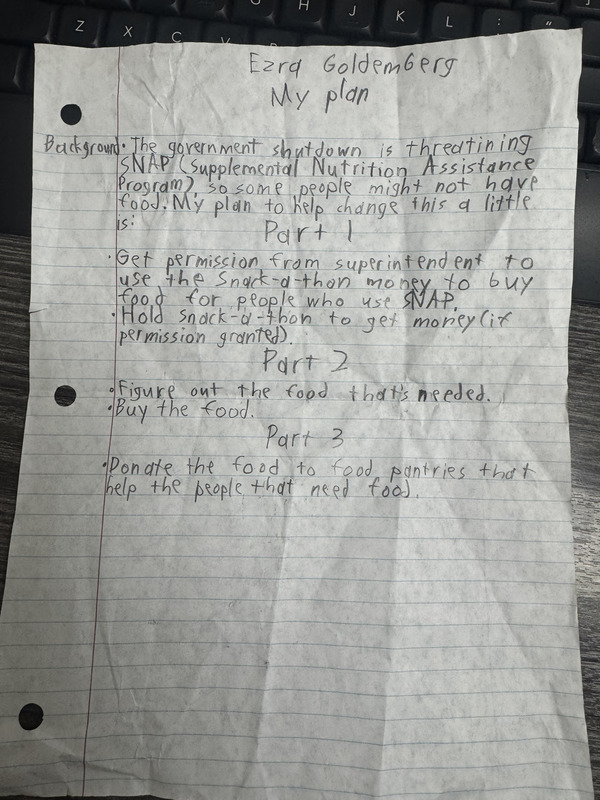 Z X C V G H J K L : "
Ezra Goldemberg
My plan
Background • The government shutdown is threatining
SNAP (Supplemental Nutrition Assistance
Program), so some people might not have
food. My plan to help change this a little
is:
Part 1
• Get permission from superintendent to
use the Snack-a-thon money to buy
food for people who use SNAP.
• Hold snack-a-thon to get money (if
permission granted).
Part 2
• Figure out the food that's needed.
• Buy the food.
Part 3
• Donate the food to food pantries that
help the people that need food.